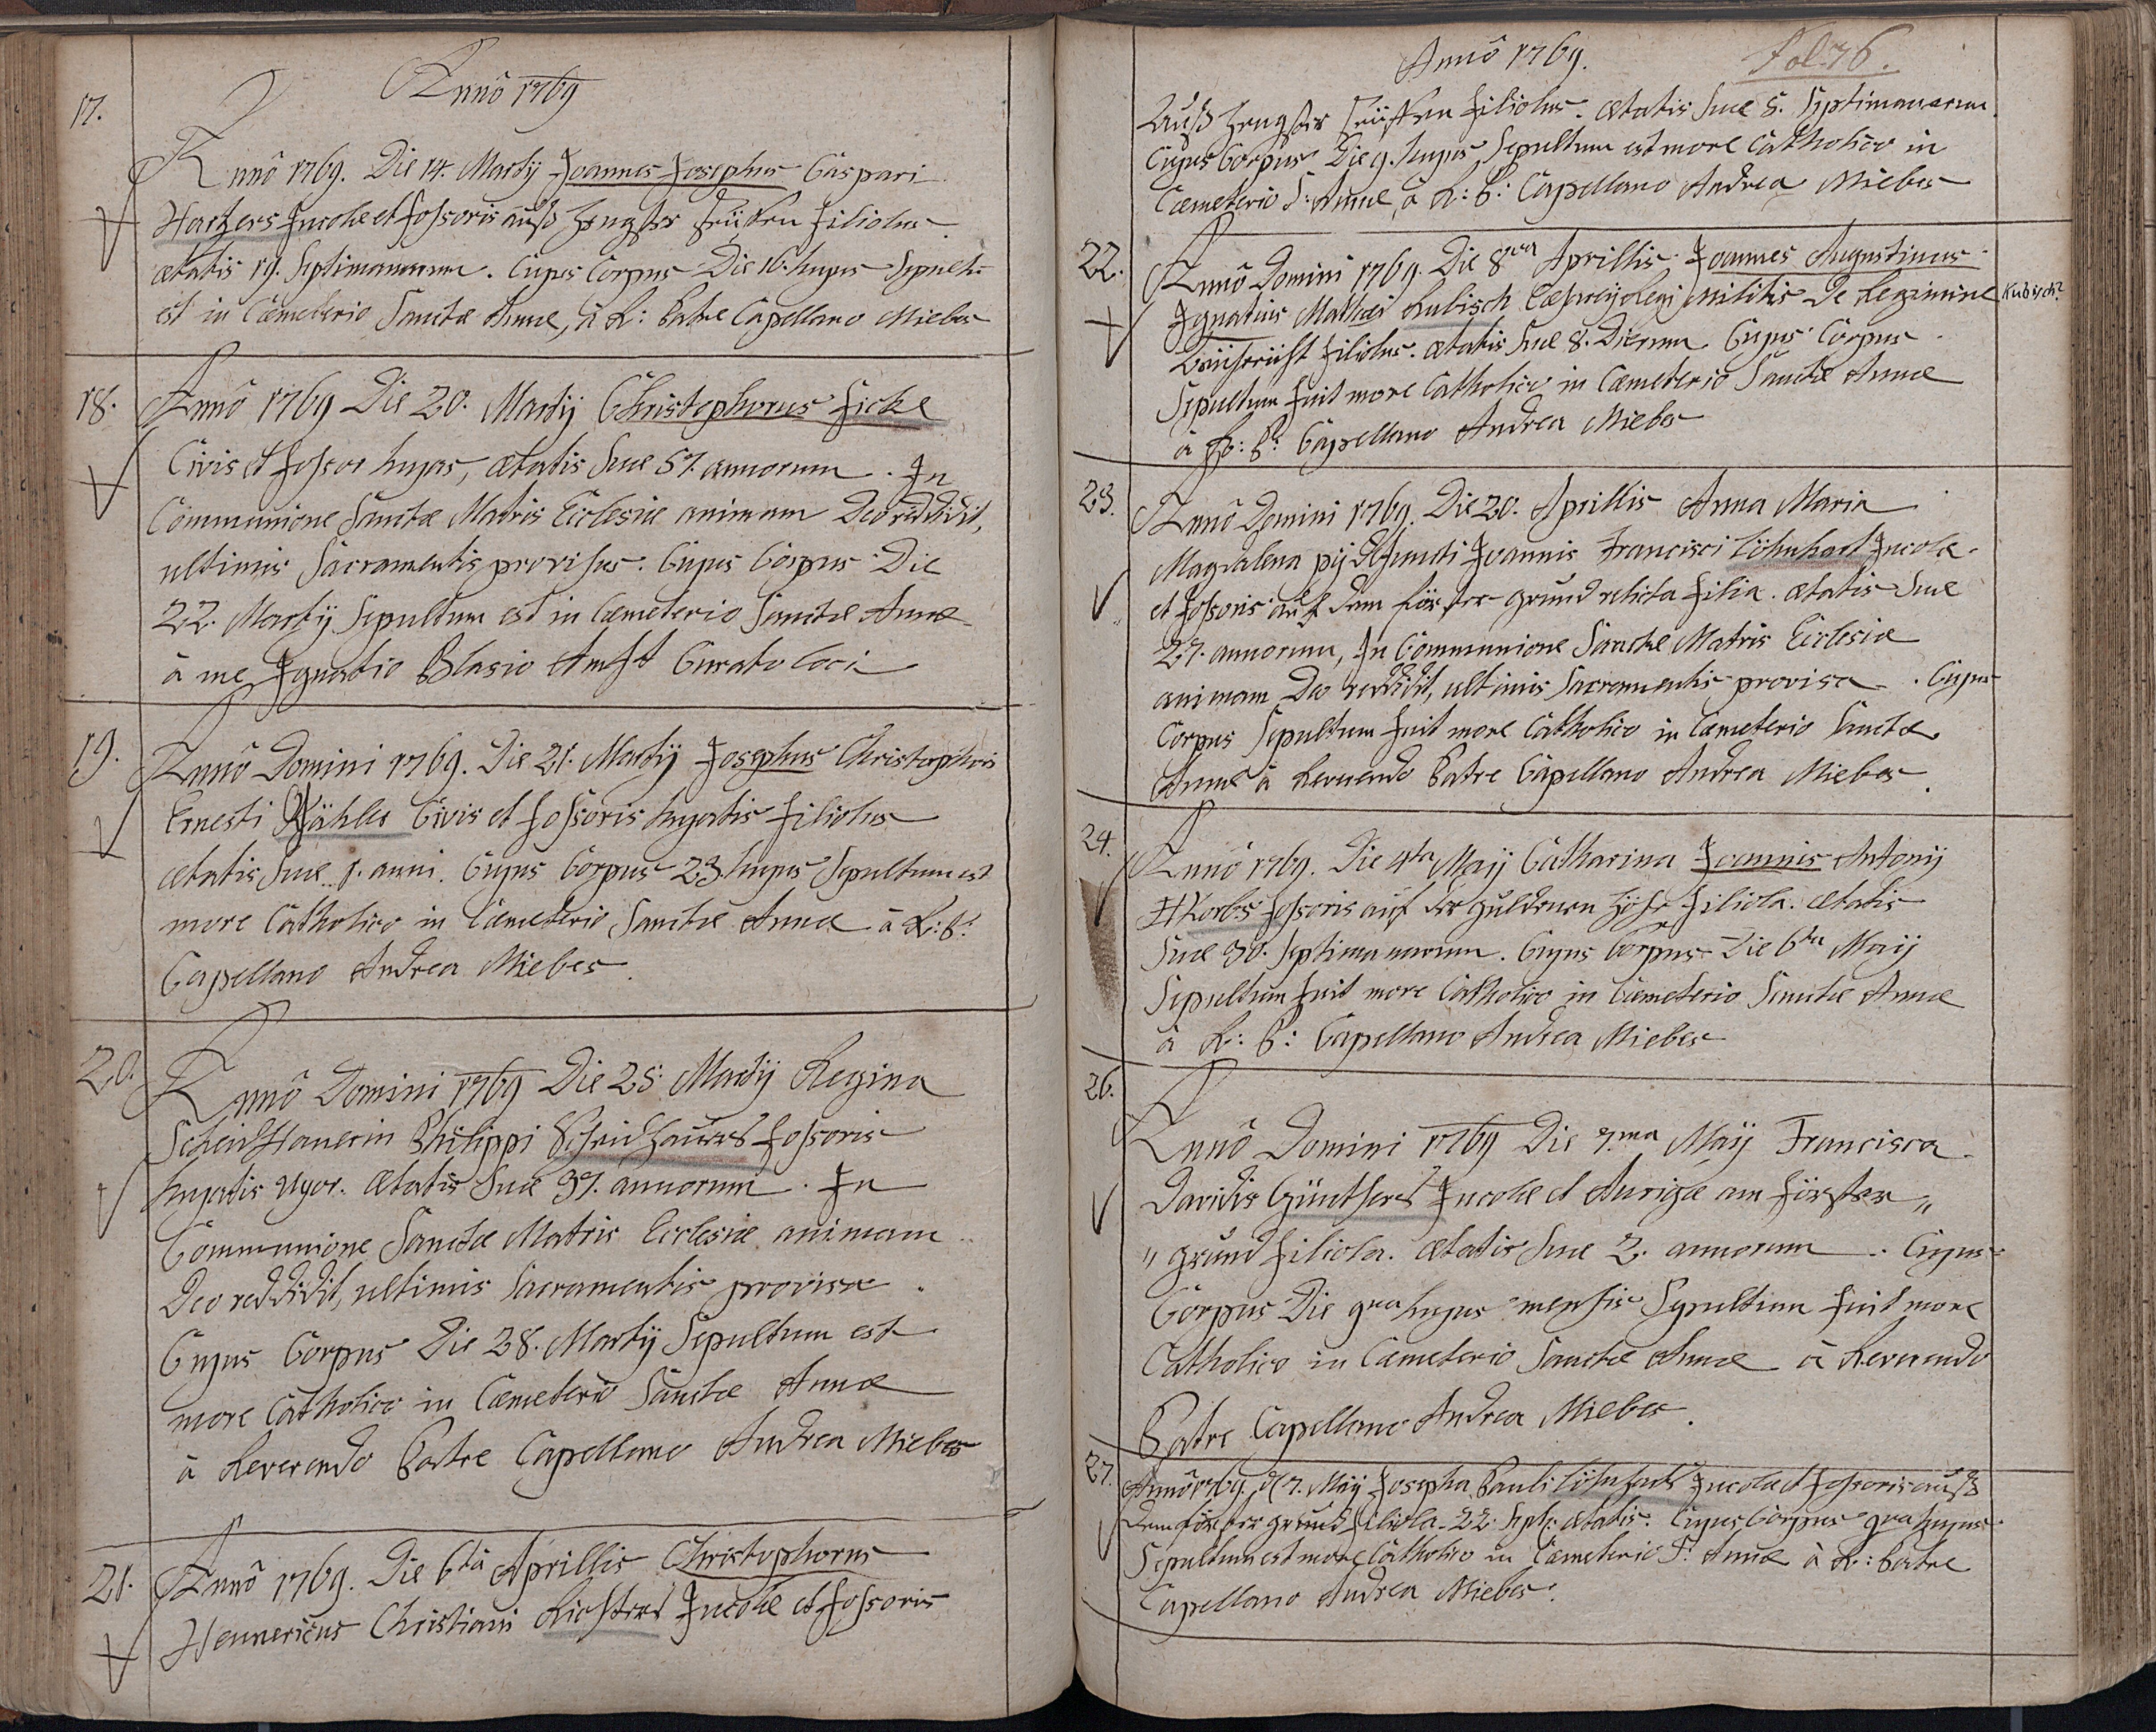 Annô 1769
17.
Annô 1769. Die 14. Martij Joannes Josephus Caspari
Hartzers Incolae et fossoris auß Hengster Erüften filiolus
aetatis 19. Septimanarum. Cujus Corpus Die 16. hujus Sepult:
est in Caemeterio Sanctae Annae, à R: Patre Capellano Miebes
18.
Annô 1769 Die 20. Martij Christophorus Ficke
Civis et fossor hujas, aetatis suae 57. annorum. In
Communione Sanctae Matris Ecclesiae animam Deo reddidit,
ultimis Sacramentis provisus. Cujus Corpus Die
22. Martij Sepultum est in Caemeterio Sanctae Annae
à me Ignatio Blasio Curato loci
19.
Annô Domini 1769. Die 21. Martij Josephus Christophori
Ernesti Civis et fossoris hujatis filiolus
aetatis suae 1. anni. Cujus Corpus 23. hujus Sepultum est
more Catholico in Caemeterio Sanctae Annae à R: P:
Capellano Andrea Miebes.
20.
Annô Domini 1769 Die 25. Martij Regina
Scheidhauerin Philippi Scheidhauers fossoris
hujatis uxor. aetatis suae 37. annorum. In
Communione Sanctae Matris Ecclesiae animam
Deo reddidit, ultimis Sacramentis provisa.
Cujus Corpus Die 28. Martij Sepultum est
more Catholico in Caemeterio Sanctae Annae
à Reverendo Patre Capellano Andrea Miebes
21.
Annô 1769. Die 6ta Aprillis Christophorus
Hennericus Christiani Richters Incolae et fossoris
Annô 1769. fol. 76.
Auß Hengster Erüften filiolus. aetatis suae 5. Septimanarum
Cujus Corpus Die 9. hujus Sepultum est more Catholico in
Caemeterio S: Annae, à R: P: Capellano Andrea Miebes
22.
Annô Domini 1769. Die 8va Aprillis Joannes Augustinus
Ignatius Mathaei Kubisch militis De Regimine Kubisch?
filiolus. aetatis suae 8. Dierum. Cujus Corpus
Sepultum fuit more Catholico in Caemeterio Sanctae Annae
à R: P: Capellano Andrea Miebes
23.
Annô Domini 1769. Die 20. Aprillis Anna Maria
Magdalena pij defuncti Joannis Francisci Löhnhart Incolae
et fossoris auf dem förster grund relicta filia. aetatis suae
27. annorum, In Communione Sanctae Matris Ecclesiae
animam Deo reddidit, ultimis Sacramentis provisa. Cujus
Corpus Sepultum fuit more Catholico in Caemeterio Sanctae
Annae à Reverendo Patre Capellano Andrea Miebes.
24.
Annô 1769. Die 4ta Maij Catharina Joannis Antonij
Korbs fossoris auf der guldenen Höhe filiola. aetatis
suae 30. Septimanarum. Cujus Corpus Die 6ta Maij
Sepultum fuit more Catholico in Caemeterio Sanctae Annae
à R: P: Capellano Andrea Miebes
26.
Annô Domini 1769 Die 7.ma Maij Francisca
Davidis Günthers Incolae et Aurigae am förster„
„grund filiola. aetatis suae 2. annorum. Cujus
Corpus Die 9na hujus mensis Sepultum fuit more
Catholico in Caemeterio Sanctae Annae à Reverendo
Patre Capellano Andrea Miebes.
27.
Annô 1769. d 7. Maij Josepha Pauli Löhnharts Incolae et fossoris auß
dem förster grund filiola. 22. Sept: aetatis. Cujus Corpus 9na hujus
Sepultum est more Catholico in Caemeterio S: Annae à R: Patre
Capellano Andrea Miebes.